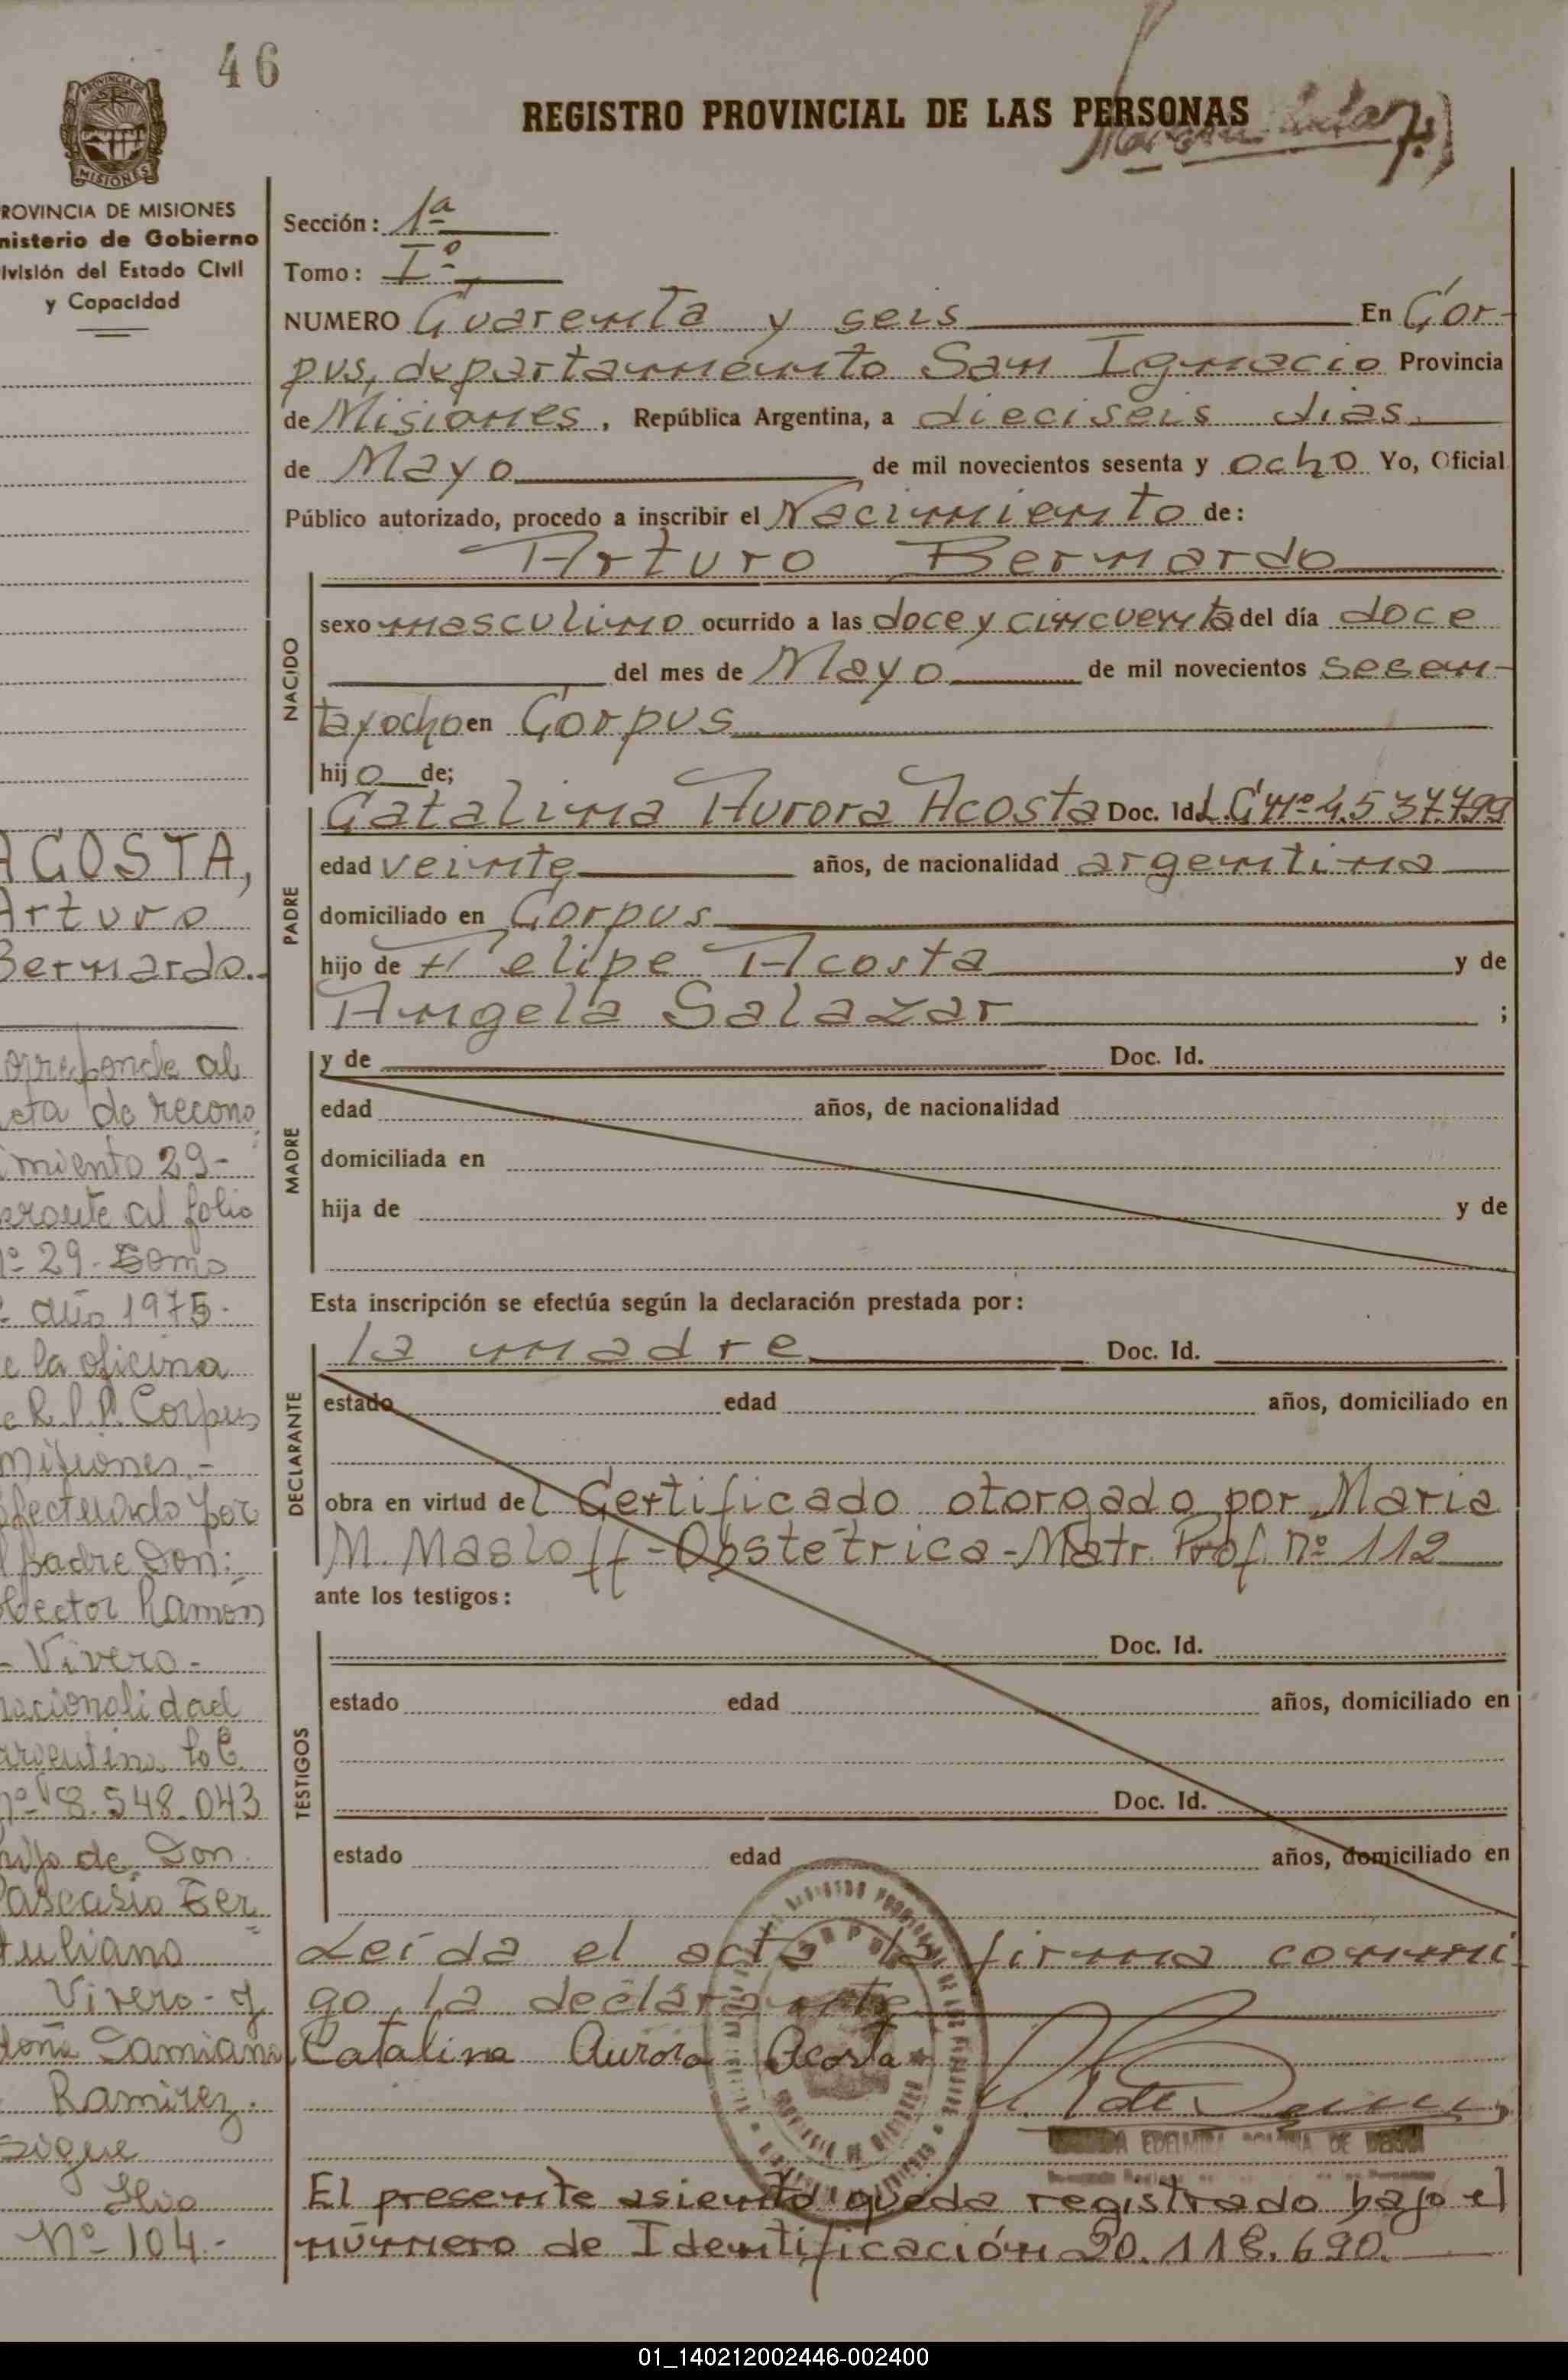 46
REGISTRO PROVINCIAL DE LAS PERSONAS
PROVINCIA DE
MISIONES
ROVINCIA DE MISIONES
nisterio de Gobierno
ivisión del Estado Civil
y Capacidad
Sección: 1ª
Tomo: Iº
NUMERO Cuarenta y seis En Cor-
pus, departamento San Ignacio Provincia
de Misiones, República Argentina, a dieciseis dias
de Mayo de mil novecientos sesenta y ocho Yo, Oficial
Público autorizado, procedo a inscribir el Nacimiento de:
Arturo Bernardo
NACIDO
sexo masculino ocurrido a las doce y cincuenta del día doce
del mes de Mayo de mil novecientos sesen-
ta y ocho en Corpus
hijo de;
PADRE
Catalina Aurora Acosta Doc. Id. L.C nº 4.537.799
edad veinte años, de nacionalidad argentina
domiciliado en Corpus
hijo de Felipe Acosta y de
Angela Salazar ;
MADRE
y de Doc. Id.
edad años, de nacionalidad
domiciliada en
hija de y de
Esta inscripción se efectúa según la declaración prestada por:
DECLARANTE
la madre Doc. Id.
estado edad años, domiciliado en
obra en virtud del Certificado otorgado por Maria
M. Masloff-Obstétrica-Matr. Prof. nº 112
ante los testigos:
TESTIGOS
Doc. Id.
estado edad años, domiciliado en
Doc. Id.
estado edad años, domiciliado en
Leída el acta la firma conmi-
go, la declarante
Catalina Aurora Acosta
EDELMIRA DE
El presente asiento queda registrado bajo el
número de Identificación 20.118.690.
ACOSTA,
Arturo
Bernardo.-
orresponde al
cta de recono
imiento 29-
al folio
nº 29- Tomo
año 1975-
e la oficina
e R.P.P. Corpus
Misiones.-
efectuado por
l padre Don:
Hector Ramón
- Vivero -
nacionalidad
argentina
nº 8.548.043
hijo de Don
Pascasio Ter
tuliano
Vivero - y
doña Damiana
Ramirez.
Sigue
Nº 104.-
01_140212002446-002400